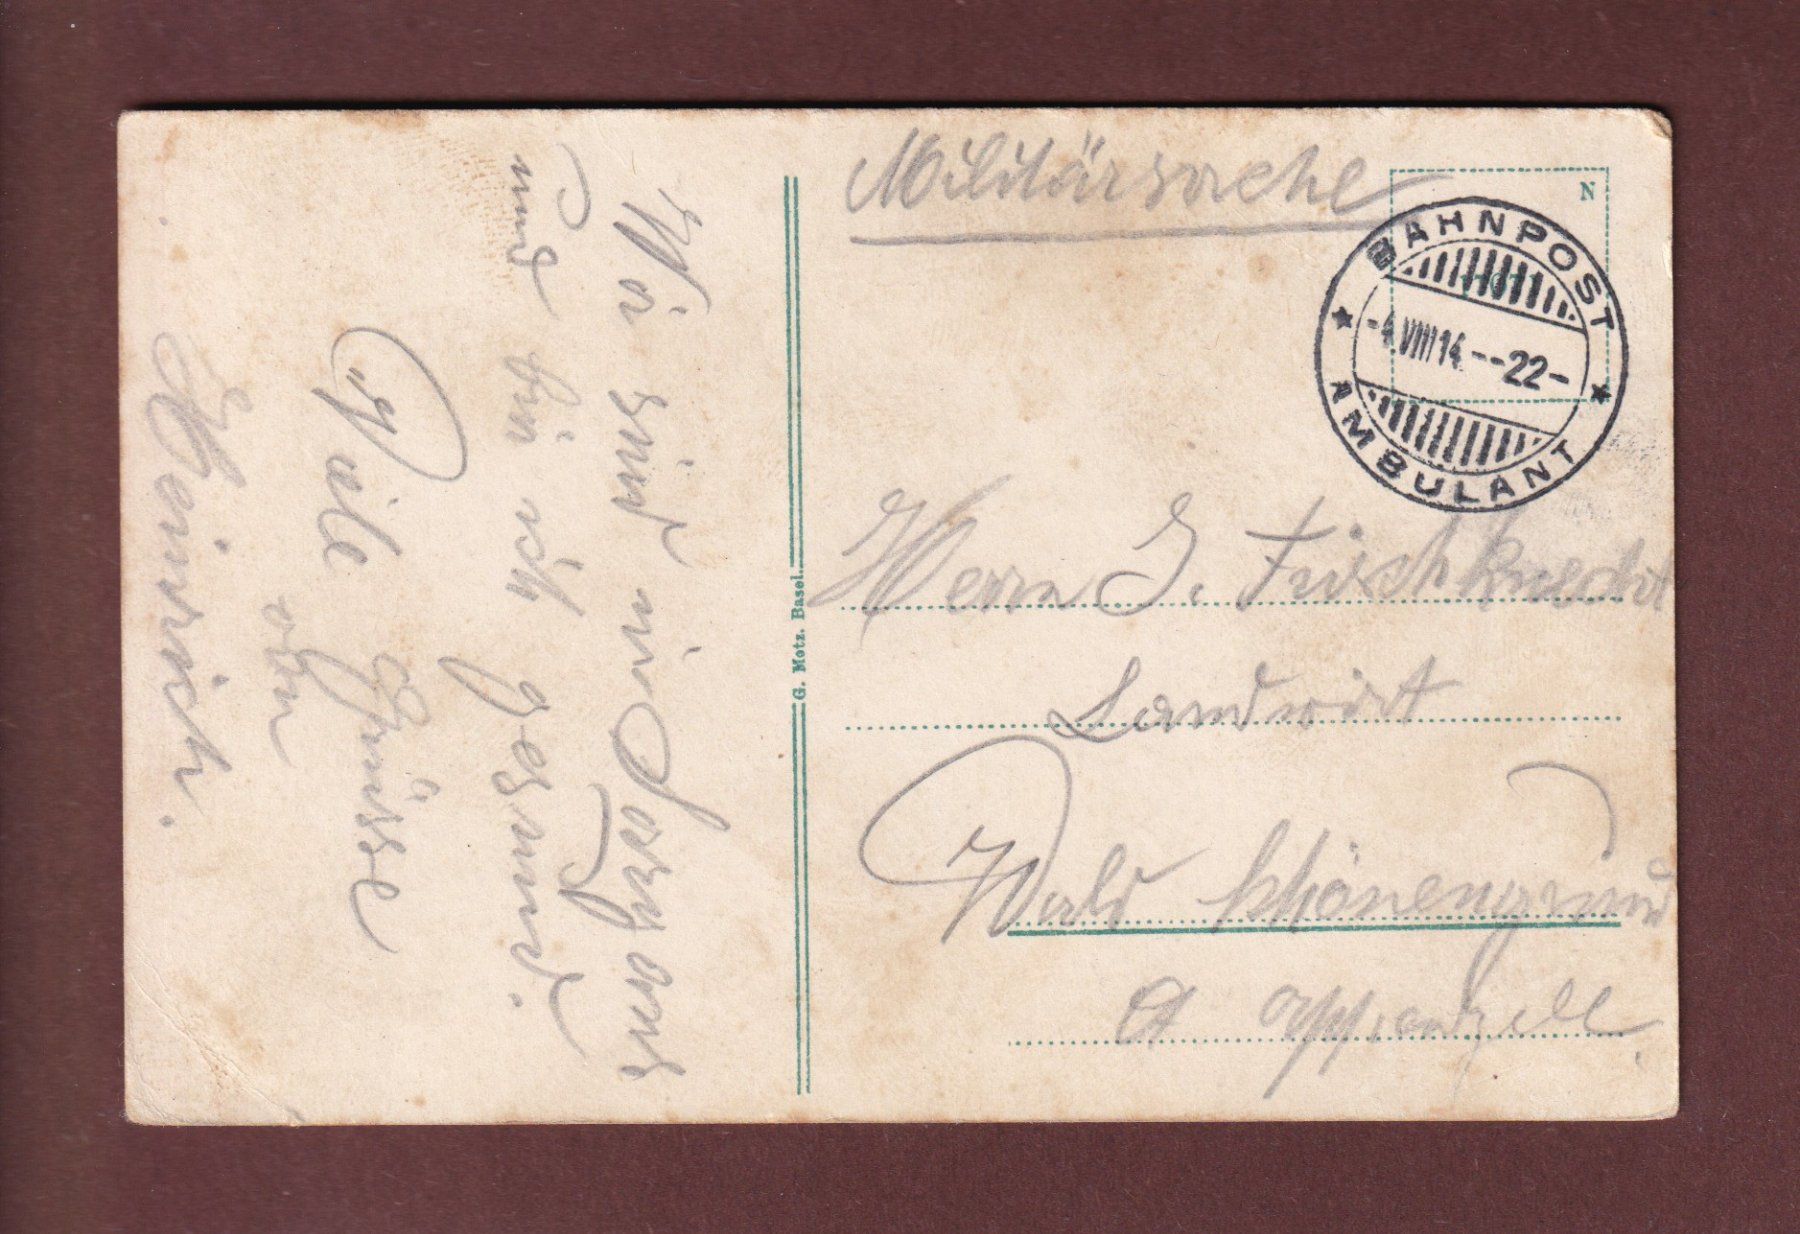 Militärsache
N
BAHNPOST
-4.VIII14.--22-
AMBULANT
Herrn J. Frischknecht
Landwirt
Wald Schönengrund
Ct Appenzell
G. Metz. Basel.
Wir sind in
und bin ich gesund.
Viele Grüsse
von
Heinrich.